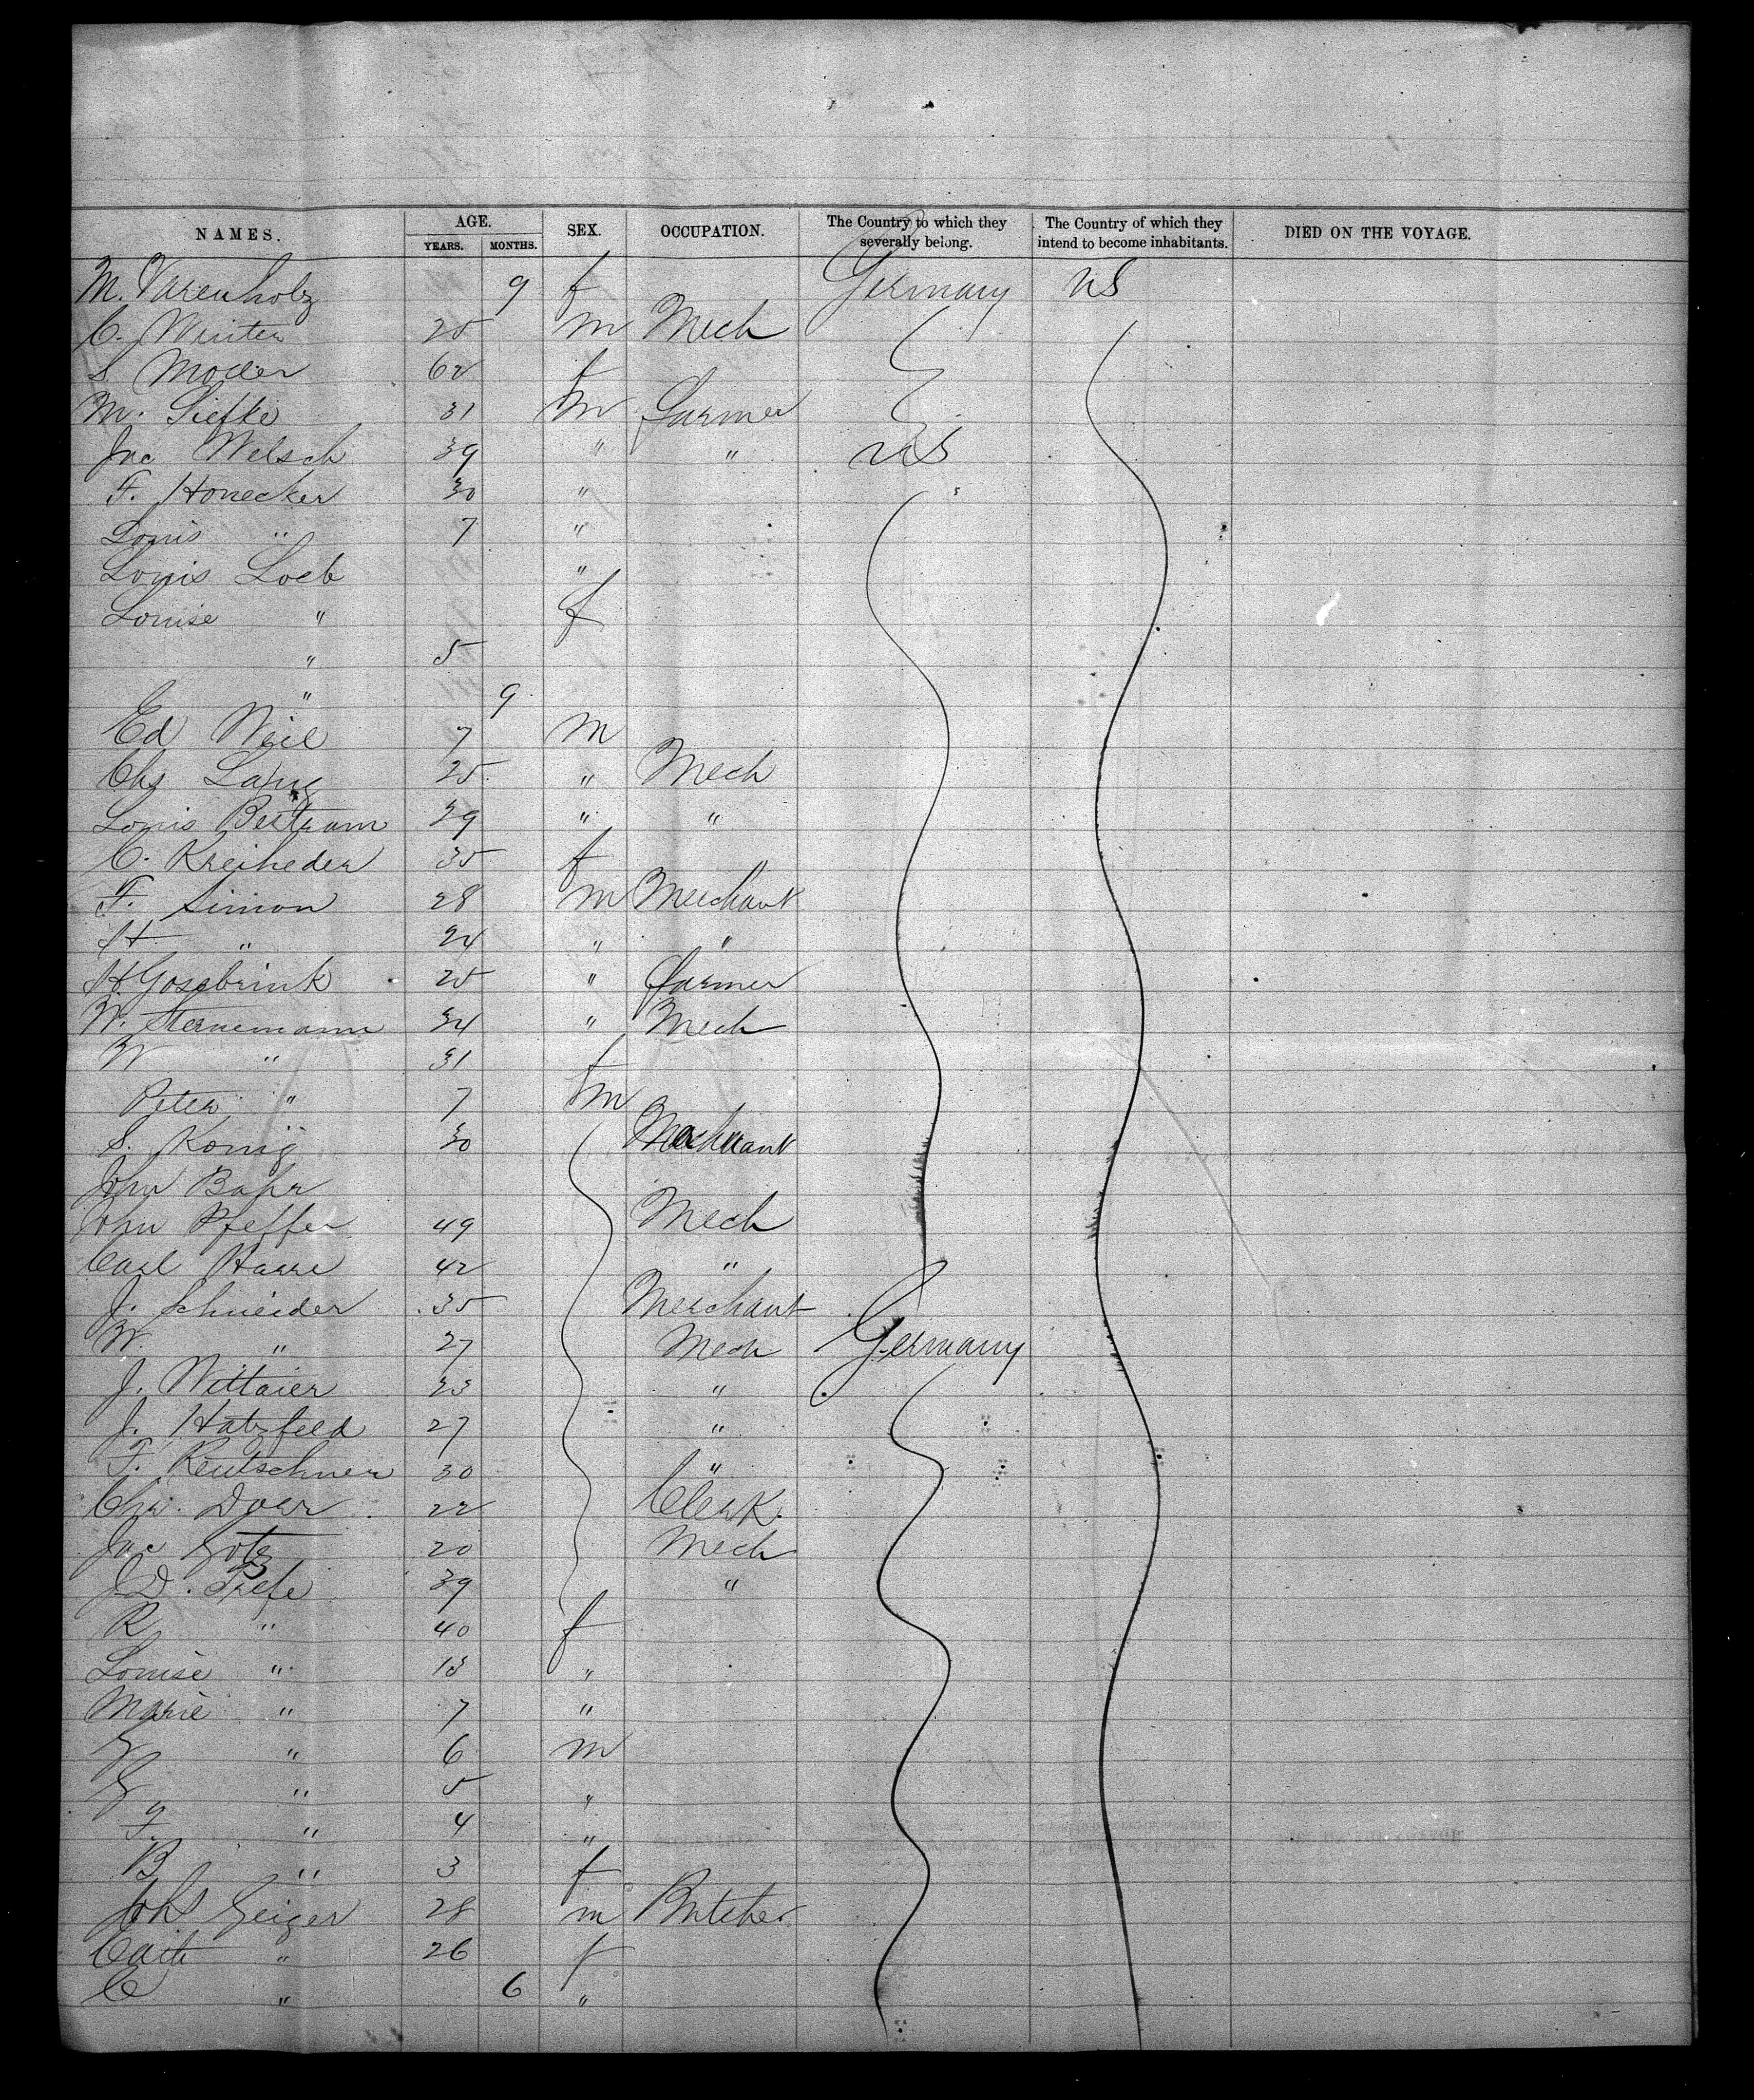 NAMES. AGE. YEARS. MONTHS. SEX. OCCUPATION. The Country to which they severally belong. The Country of which they intend to become inhabitants. DIED ON THE VOYAGE.
M. Varenholz 9 f Germany US
C. Winter 25 m Mech
S Moller 62 f
M. Siefke 31 m Farmer
Jac Welsch 39 " " US
F. Honecker 30 "
Louis " 7 "
Louis Loeb "
Louise " f
" 5
" 9
Ed Weil 7 m
Chs Lang 25 " Mech
Louis Bertram 29 " "
C. Kreiheder 35 f
F. Simon 28 m Merchant
H " 24 " "
H Gosebrink 25 " Farmer
W. Sternemann 34 " Mech
W " 31 f
Peter " 7 m
S. König 30 Merchant
John Bahr
John Pfeffer 49 Mech
Carl Haare 42 "
J. Schneider 35 Merchant
W. " 27 Mech Germany
J. Wittaier 33 "
J. Hatzfeld 27 "
F. Reutschner 30 "
Chr. Doer 22 Clerk
Jac Gotz 20 Mech
J.D. 39 "
R " 40 f
Louise " 13 "
Marie " 7 "
G " 6 m
G " 5 "
F. " 4 "
B " 3 f
Joh Geiger 28 m Butcher
Cath " 26 f
C " 6 "